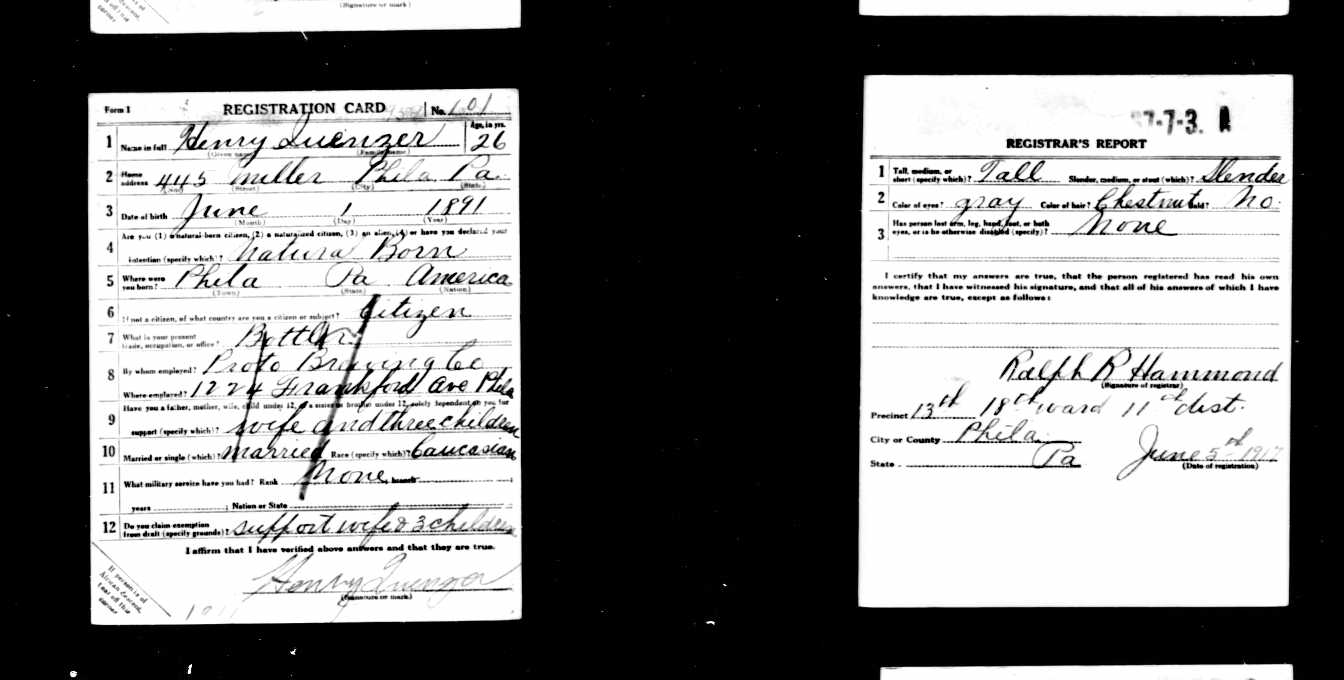 (Signature or mark)
Form 1 REGISTRATION CARD No. 101
1 Name in full Henry Quenzer Age, in yrs. 26
(Given name) (Family name)
2 Home address 445 Miller Phila. Pa.
(No.) (Street) (City) (State)
3 Date of birth June 1 1891
(Month) (Day) (Year)
Are you (1) a natural-born citizen, (2) a naturalized citizen, (3) an alien, (4) or have you declared your
4 intention (specify which)? Natural Born
5 Where were you born? Phila Pa America
(Town) (State) (Nation)
6 If not a citizen, of what country are you a citizen or subject? Citizen
7 What is your present trade, occupation, or office? Bottler
8 By whom employed? Proto Brewing Co
Where employed? 1224 Frankford Ave Phila
Have you a father, mother, wife, child under 12, or a sister or brother under 12, solely dependent on you for
9 support (specify which)? wife and three children
10 Married or single (which)? married Race (specify which)? Caucasian
11 What military service have you had? Rank None, branch
years ; Nation or State
12 Do you claim exemption from draft (specify grounds)? support wife & 3 children
I affirm that I have verified above answers and that they are true.
Henry Quenzer
(Signature or mark)
If person is of
African descent,
tear off this
corner
37-7-3. A
REGISTRAR'S REPORT
1 Tall, medium, or short (specify which)? Tall Slender, medium, or stout (which)? Slender
2 Color of eyes? gray Color of hair? Chestnut Bald? No.
3 Has person lost arm, leg, hand, foot, or both eyes, or is he otherwise disabled (specify)? None
I certify that my answers are true, that the person registered has read his own
answers, that I have witnessed his signature, and that all of his answers of which I have
knowledge are true, except as follows:
Ralph R Hammond
(Signature of registrar)
Precinct 13th 18th ward 11th dist.
City or County Phila.
State Pa June 5th 1917
(Date of registration)